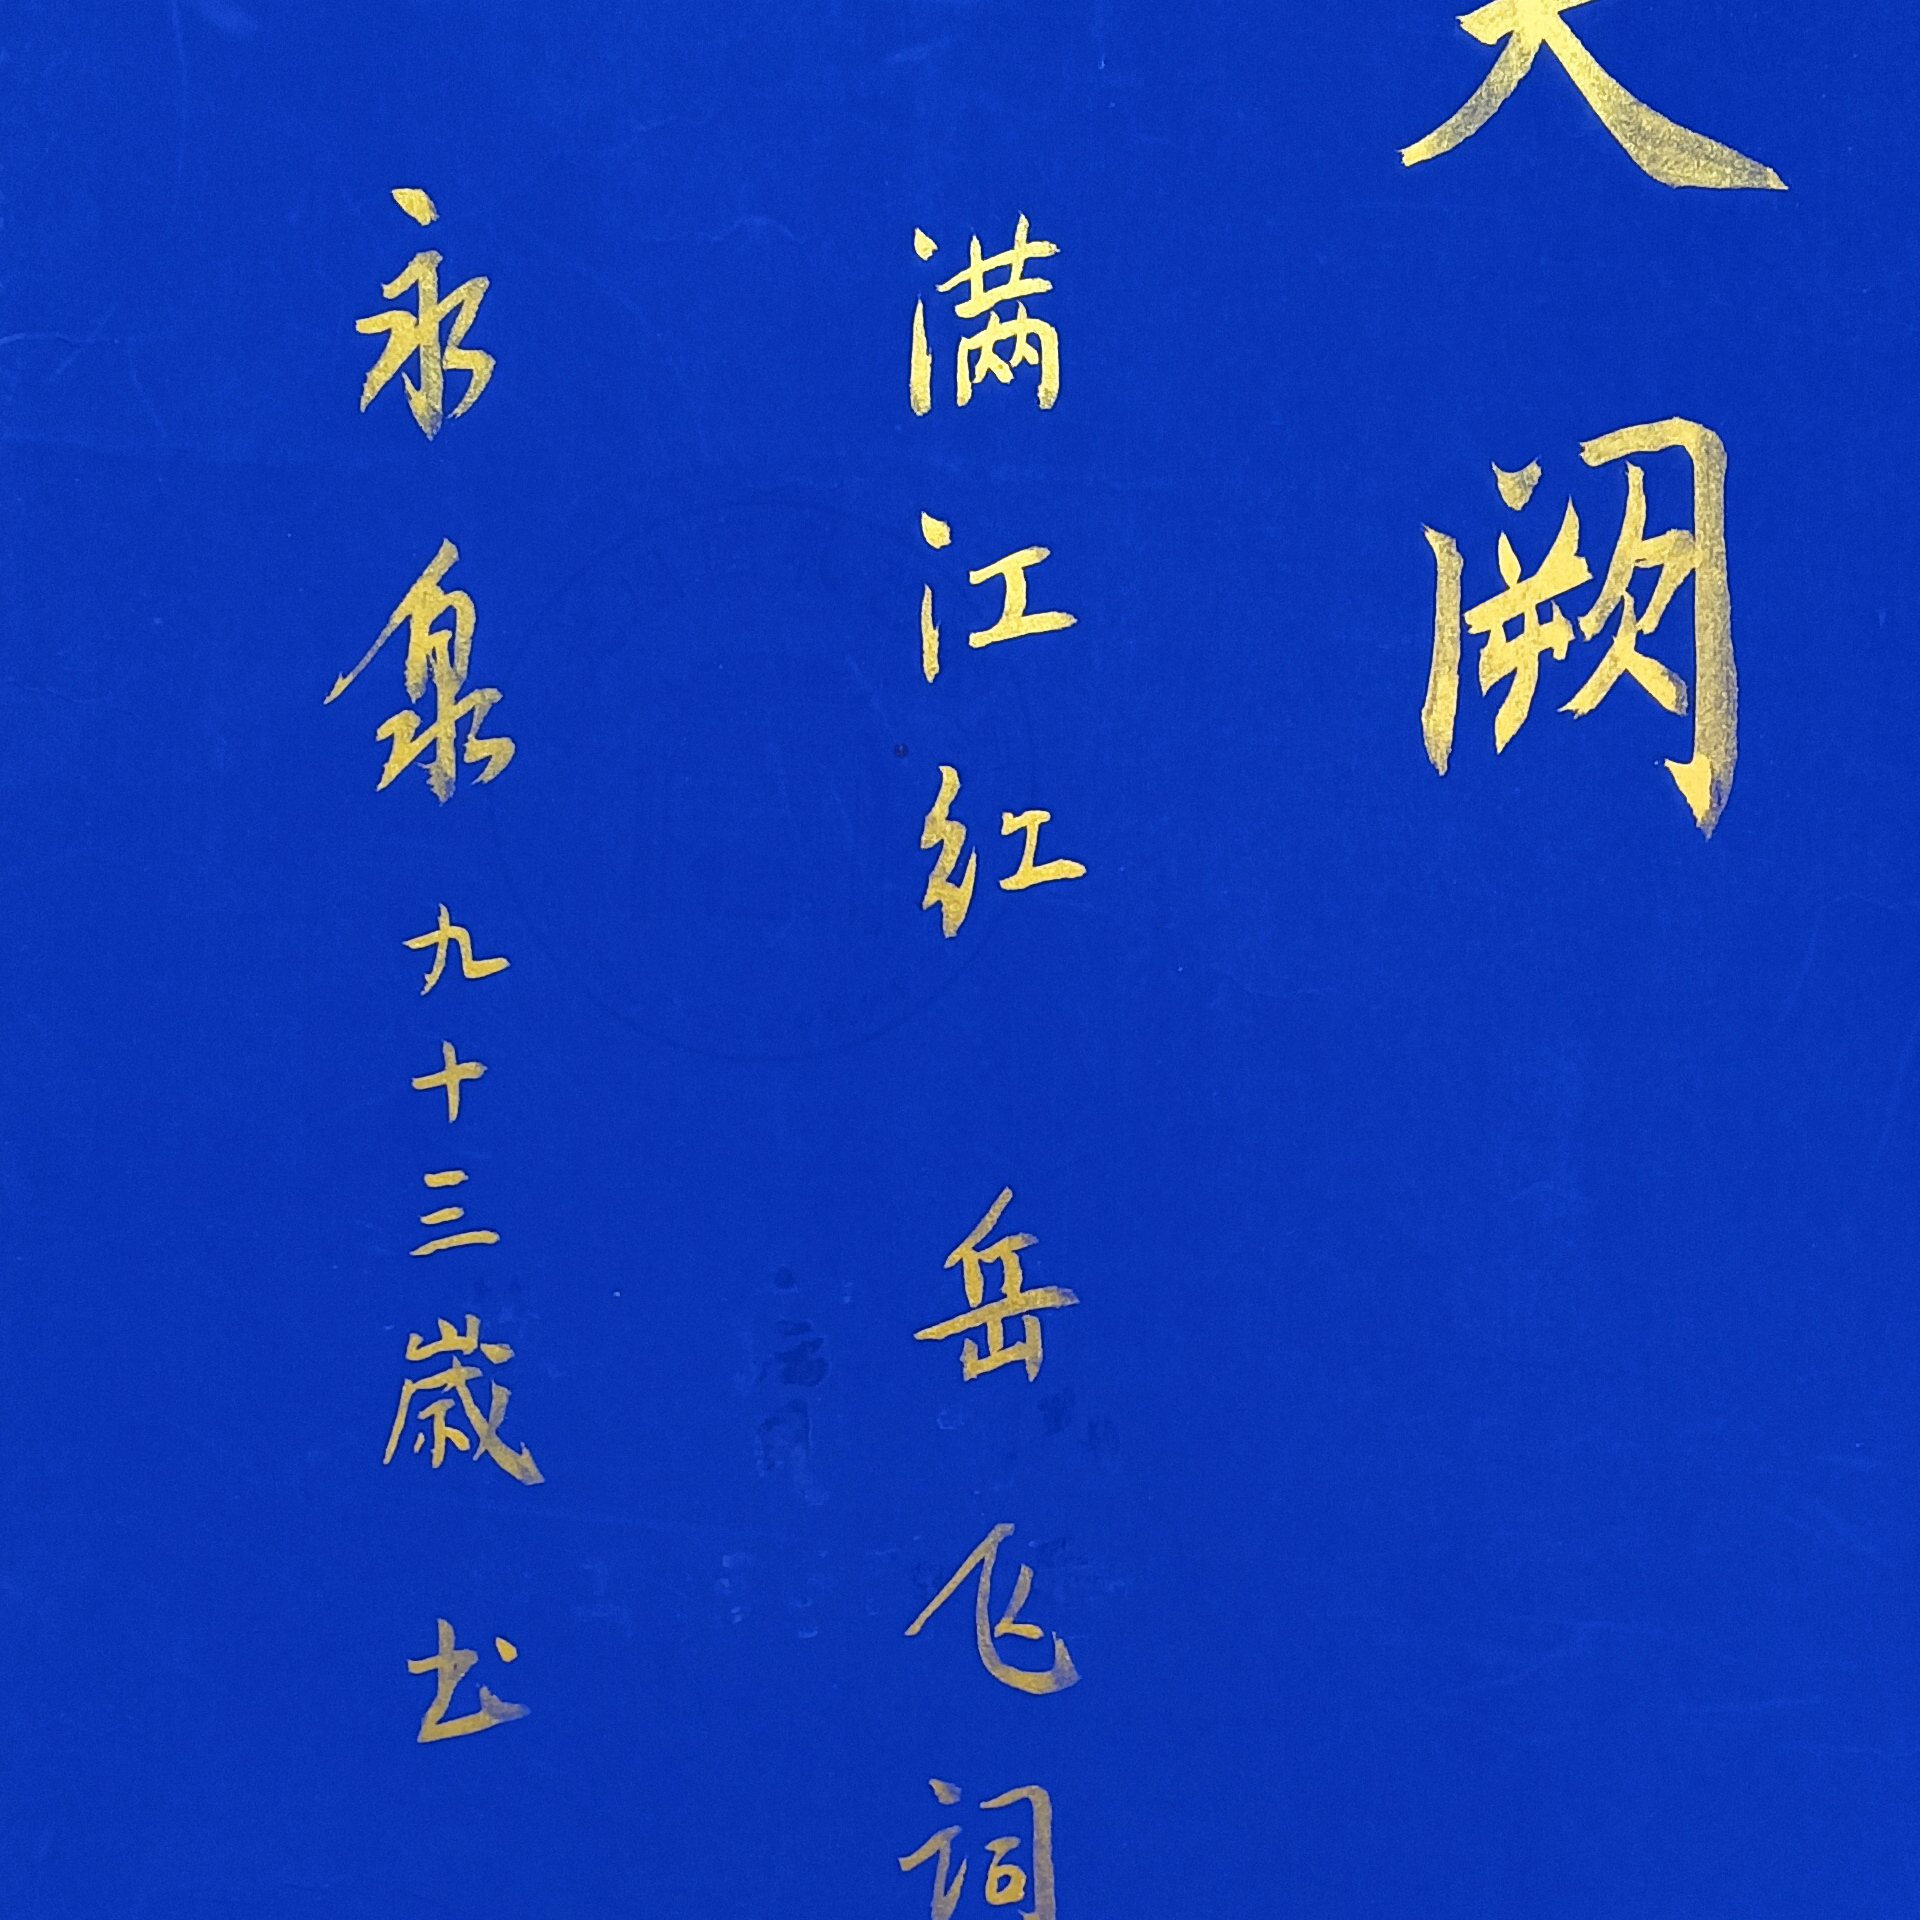 天阙
满江红 岳飞词
永泉 九十三歳 书